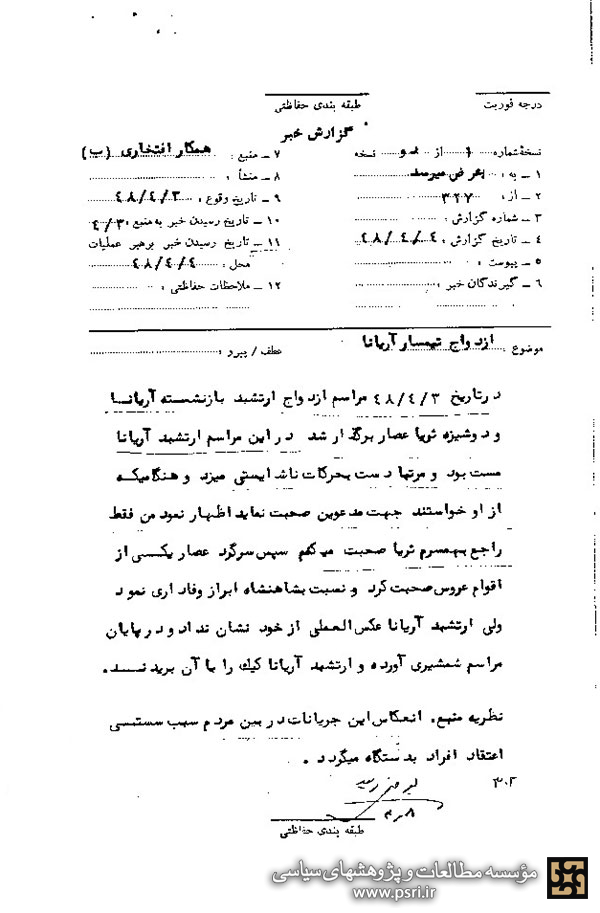 درجه فوریت
طبقه بندی حفاظتی
گزارش خبر
نسخهٔ شماره ۱ از نسخه
۷ ـ منبع : همکار افتخاری (ب)
۱ ـ به : بعرض میرسد
۸ ـ منشأ :
۲ ـ از : ۳۲۷
۹ ـ تاریخ وقوع : ۴۸/۴/۳
۳ ـ شماره گزارش :
۱۰ ـ تاریخ رسیدن خبر به منبع : ۴/۳
۴ ـ تاریخ گزارش : ۴۸/۴/۴
۱۱ ـ تاریخ رسیدن خبر برهبر عملیات
۵ ـ پیوست :
محل : ۴۸/۴/۴
۶ ـ گیرندگان خبر :
۱۲ ـ ملاحظات حفاظتی :
موضوع : ازدواج تیمسار آریانا
عطف / پیرو :
درتاریخ ۴۸/۴/۳ مراسم ازدواج ارتشبد بازنشسته آریانا
و دوشیزه ثریا عصار برگذار شد در این مراسم ارتشبد آریانا
مست بود و مرتبا دست بحرکات ناشایستی میزد و هنگامیکه
از او خواستند جهت مدعوین صحبت نماید اظهار نمود من فقط
راجع بهمسرم ثریا صحبت میکنم سپس سرگرد عصار یکی از
اقوام عروس صحبت کرد و نسبت بشاهنشاه ابراز وفاداری نمود
ولی ارتشبد آریانا عکس العملی از خود نشان نداد و در پایان
مراسم شمشیری آورده و ارتشبد آریانا کیک را با آن بریدند.
نظریه منبع. انعکاس این جریانات در بین مردم سبب سستی
اعتقاد افراد بدستگاه میگردد.
طبقه بندی حفاظتی
مؤسسه مطالعات و پژوهشهای سیاسی
www.psri.ir